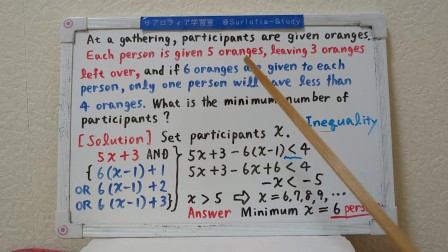 サアロラィア学習室 @Surlofia-Study
At a gathering, participants are given oranges.
Each person is given 5 oranges, leaving 3 oranges
left over, and if 6 oranges are given to each
person, only one person will have less than
4 oranges. What is the minimum number of
participants?
Inequality
[Solution] Set participants x.
5x+3 AND
{ 6(x-1)+1
OR 6(x-1)+2
OR 6(x-1)+3 }
5x+3-6(x-1)<4
5x+3-6x+6<4
-x<-5
x>5 ⇨ x=6,7,8,9,...
Answer Minimum x=6